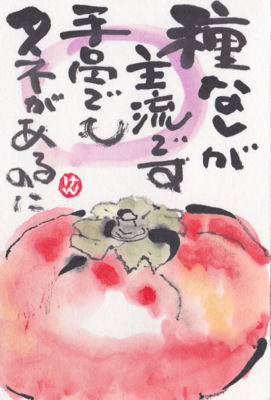 種なしが
主流です
手品でも
タネがあるのに